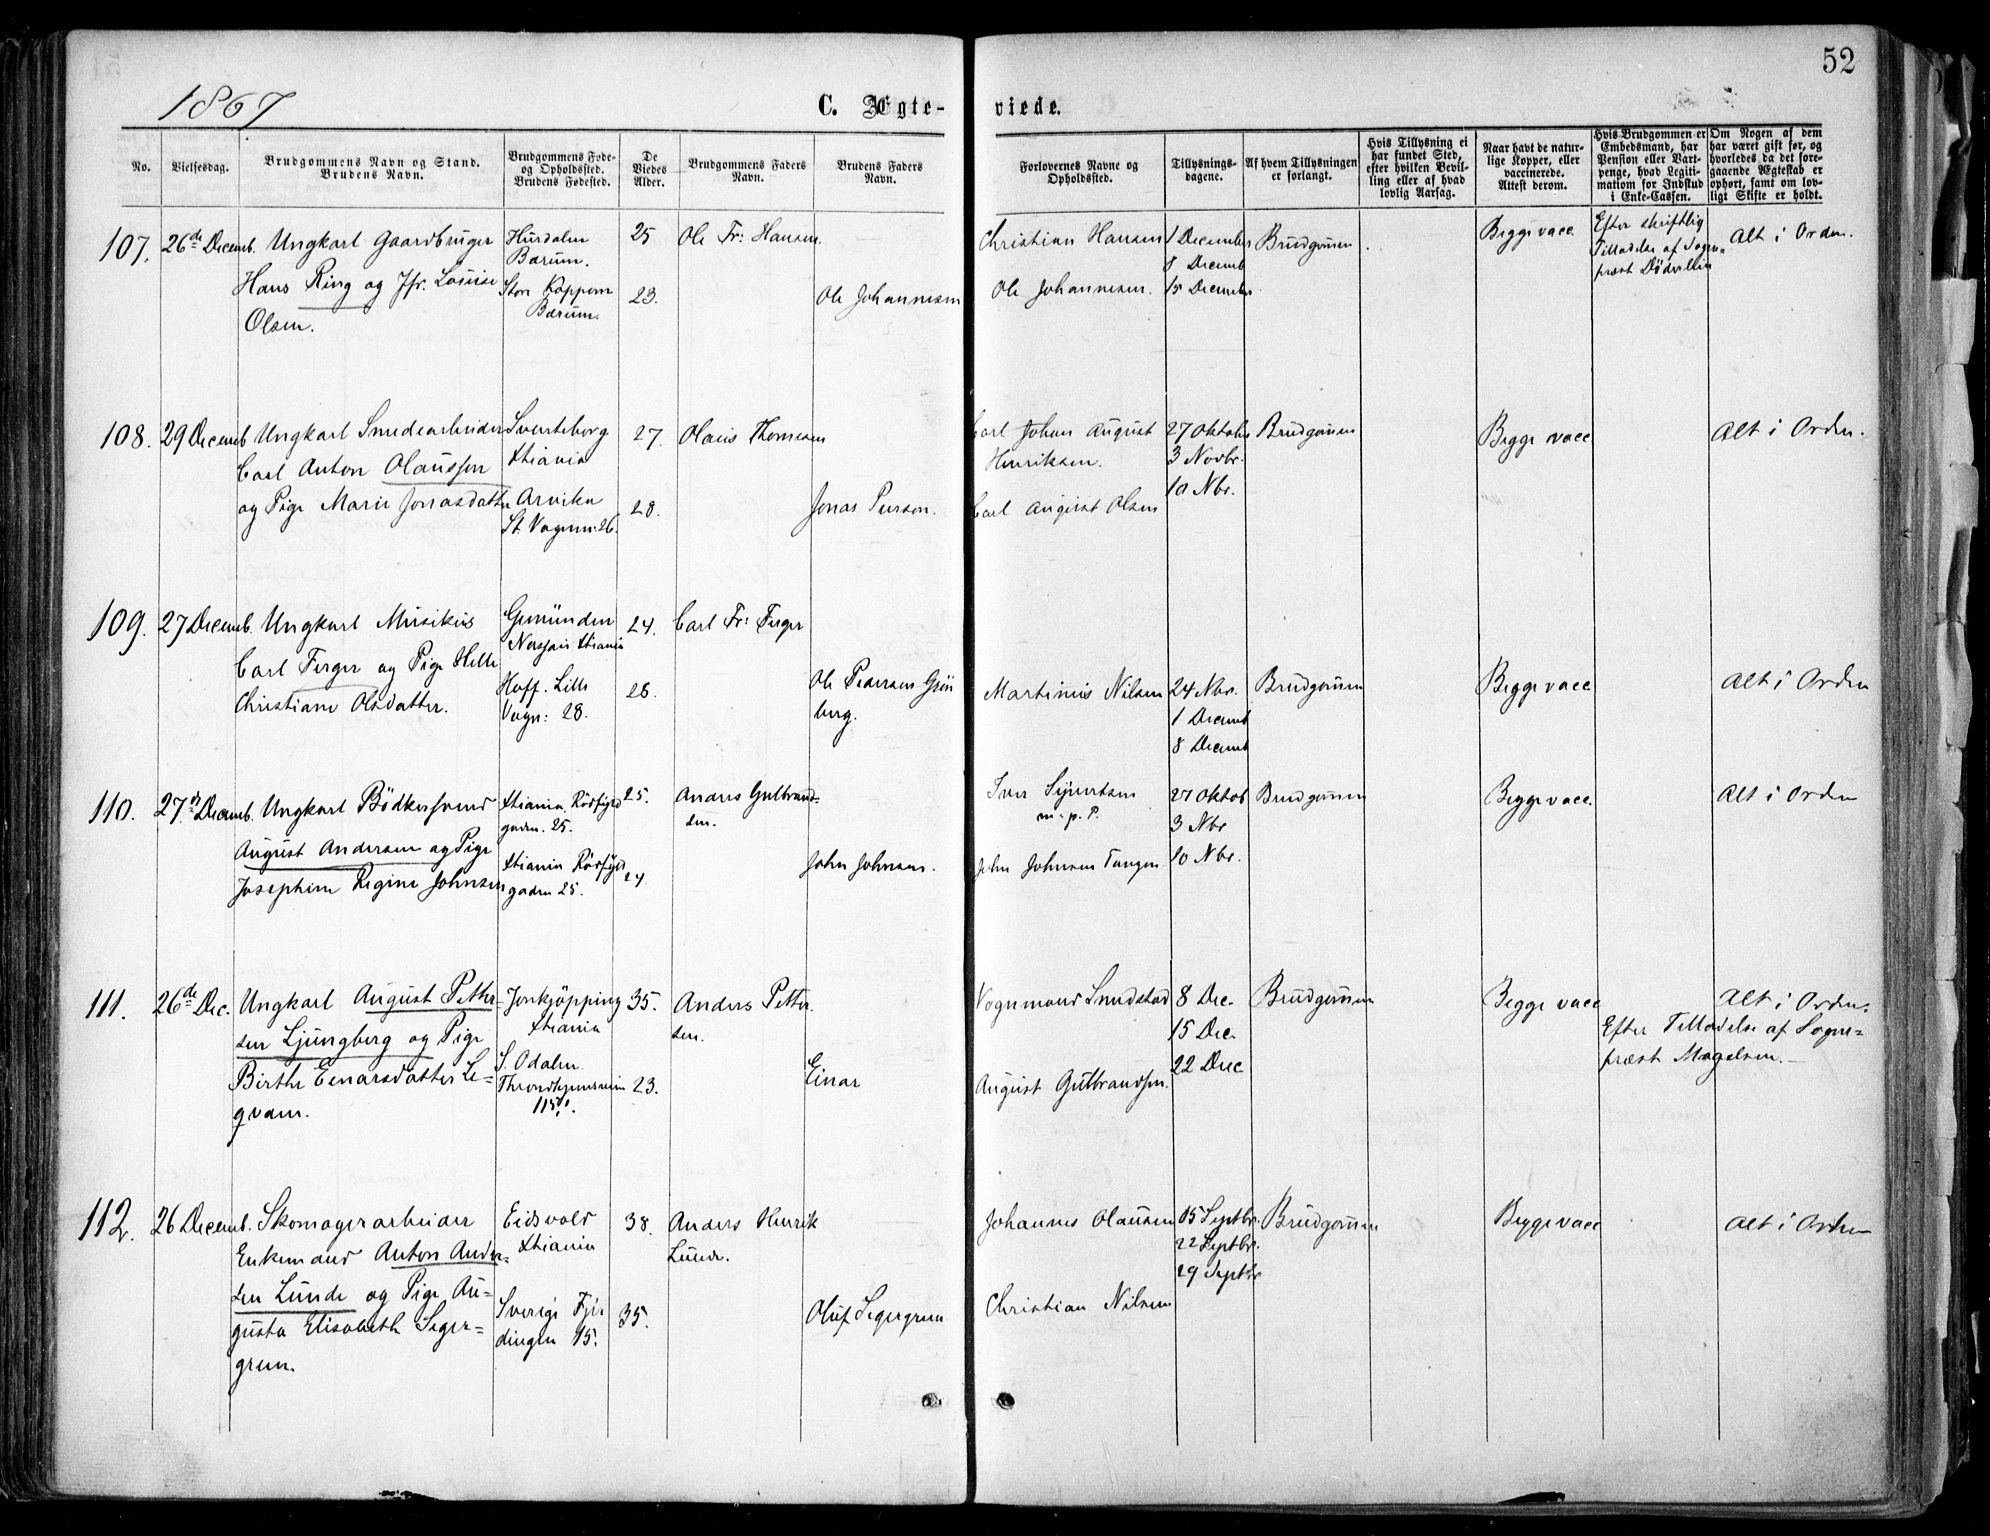 52
1867
C. Ægteviede.
No.
Vielsesdag.
Brudgommens Navn og Stand.
Brudens Navn.
Brudgommens Føde-
og Opholdssted.
Brudens Fødested.
De
Viedes
Alder.
Brudgommens Faders
Navn.
Brudens Faders
Navn.
Forlovernes Navne og
Opholdssted.
Tillysnings-
dagene.
Af hvem Tillysningen
er forlangt.
Hvis Tillysning ei
har fundet Sted,
efter hvilken Bevil-
ling eller af hvad
lovlig Aarsag.
Naar havt de natur-
lige Kopper, eller
vaccinerede.
Attest derom.
Hvis Brudgommen er
Embedsmand, har
Pension eller Vart-
penge, hvad Legiti-
mation for Indskud
i Enke-Cassen.
Om Nogen af dem
har været gift før, og
hvorledes da det fore-
gaaende Ægteskab er
ophørt, samt om lov-
ligt Skifte er holdt.
107.
26de Decemb.
Ungkarl Gaardbruger
Hans Ring og Jfr. Louise
Olsen.
Hurdalen
Bærum.
Store
Bærum.
25
23.
Ole Fr: Hansen.
Ole Johannesen
Christian Hansen
Ole Johannesen.
1 December
8 Decemb
15 December
Brudgommen
Begge vacc.
Efter skriftlig
Tilladelse af Sogne-
præst
Alt i Orden.
108.
29 Decemb
Ungkarl Smedearbeider
Carl Anton Olaussen
og Pige Marie Jonasdatter
Xtiania
Arvika
St. Vognm: 26.
27.
28.
Olaus Thomesen
Jonas Person.
Carl Johan August
Henriksen.
Carl August Olsen
27 Oktober
3 Novbr.
10 Nbr.
Brudgommen
Begge vacc
Alt i Orden.
109.
27 Decemb.
Ungkarl Musikus
Carl Ferger og Pige Helle
Christiane Olsdatter.
Gemünden
Xtiania
Hoff. Lille
Vogn: 28.
24.
26.
Carl Fr: Ferger
Ole Pedersen Grön
berg.
Martinus Nilsen
24 Nbr.
1 Decemb
8 Decemb
Brudgommen
Begge vacc
Alt i Orden
110.
27de Decemb.
Ungkarl Bödkersvend
August Andersen og Pige
Josephine Regine Johnsen
Xtiania Rödfyld
gaden. 25.
Xtiania Rödfyld
gaden 25.
25.
24.
Anders Gulbrand-
sen.
John Johnsen.
Iver Syvertsen
m. p. P.
John Johnsen Tangen
27 Oktob
3 Nbr
10 Nbr.
Brudgommen
Begge vacc.
Alt i Orden
111.
26de Dec.
Ungkarl August Petter-
sen Ljungberg og Pige
Birthe Einarsdatter Le-
qvam.
Jonkjöpping
Xtiania
S. Odalen.
Throndhjemsveien
115
35.
23.
Anders Petter
sen.
Einar
Vognmand Smedstad
August Gulbrandsen.
8 Dec.
15 Dec.
22 Dec
Brudgommen
Begge vacc
Alt i Orden.
Efter Tilladelse af Sogne-
præst Magelsen.
112.
26 Decemb.
Skomagerarbeider
Enkemand Anton Ander-
sen Lunde og Pige Au-
gusta Elisabeth Seger-
gren.
Eidsvold
Xtiania
Sverige Fjer
dingen 15.
38.
35.
Anders Henrik
Lunde.
Oluf Segergren
Johannes Olausen
Christian Nilsen
15 Septbr.
22 Septbr.
29 Septbr
Brudgommen
Begge vacc
Alt i Orden